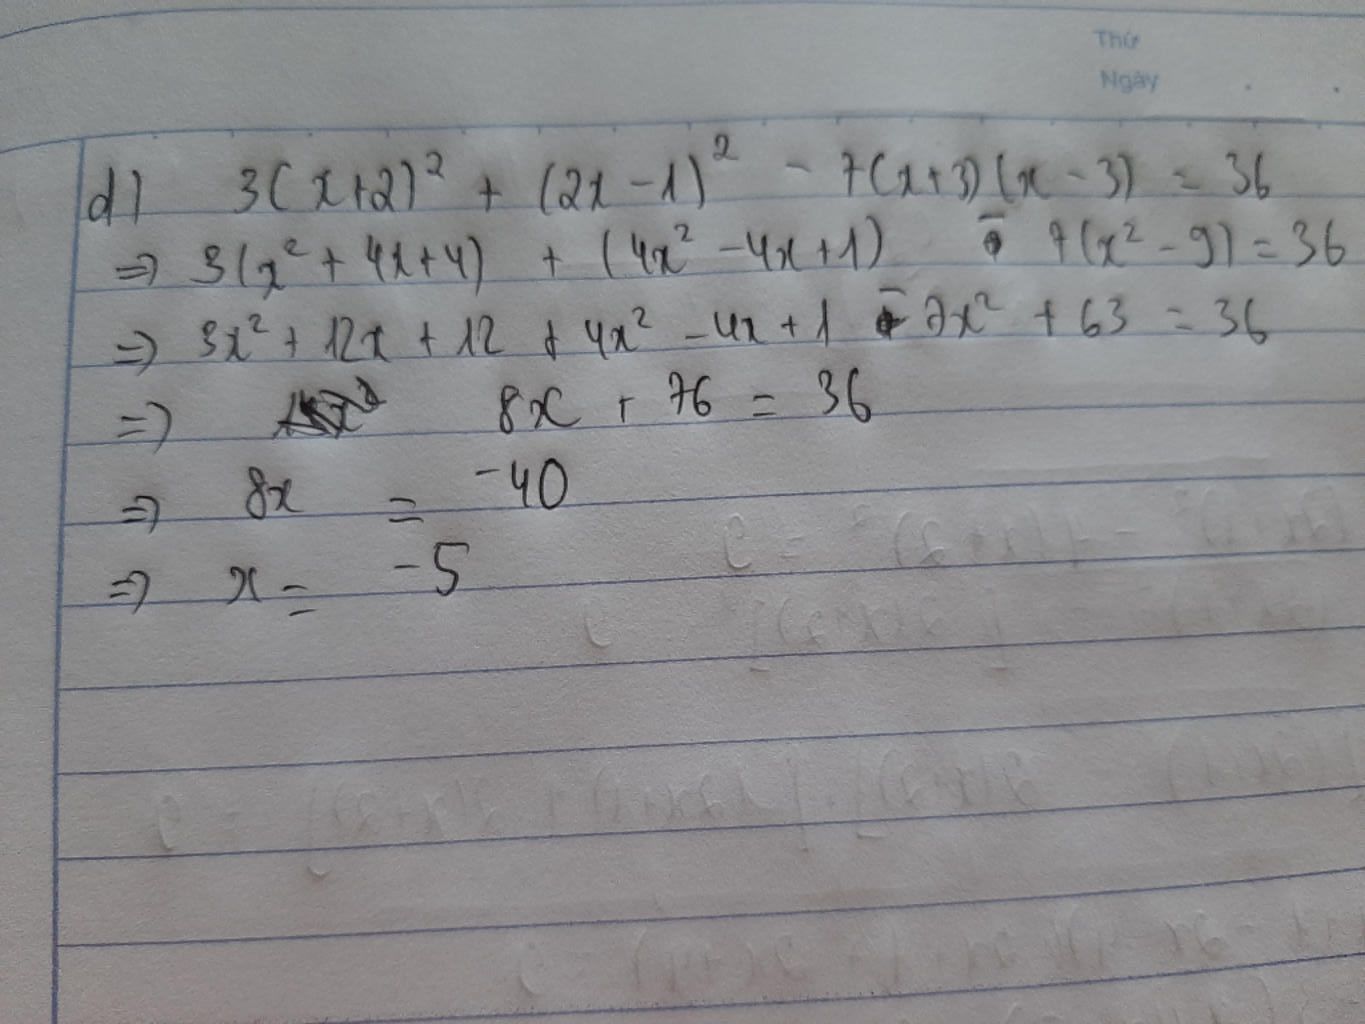 Thứ
Ngày
d) 3(x+2)² + (2x-1)² - 7(x+3)(x-3) = 36
=> 3(x² + 4x+4) + (4x² - 4x+1) - 7(x² - 9) = 36
=> 3x² + 12x + 12 + 4x² - 4x + 1 - 7x² + 63 = 36
=> 8x + 76 = 36
=> 8x = -40
=> x = -5